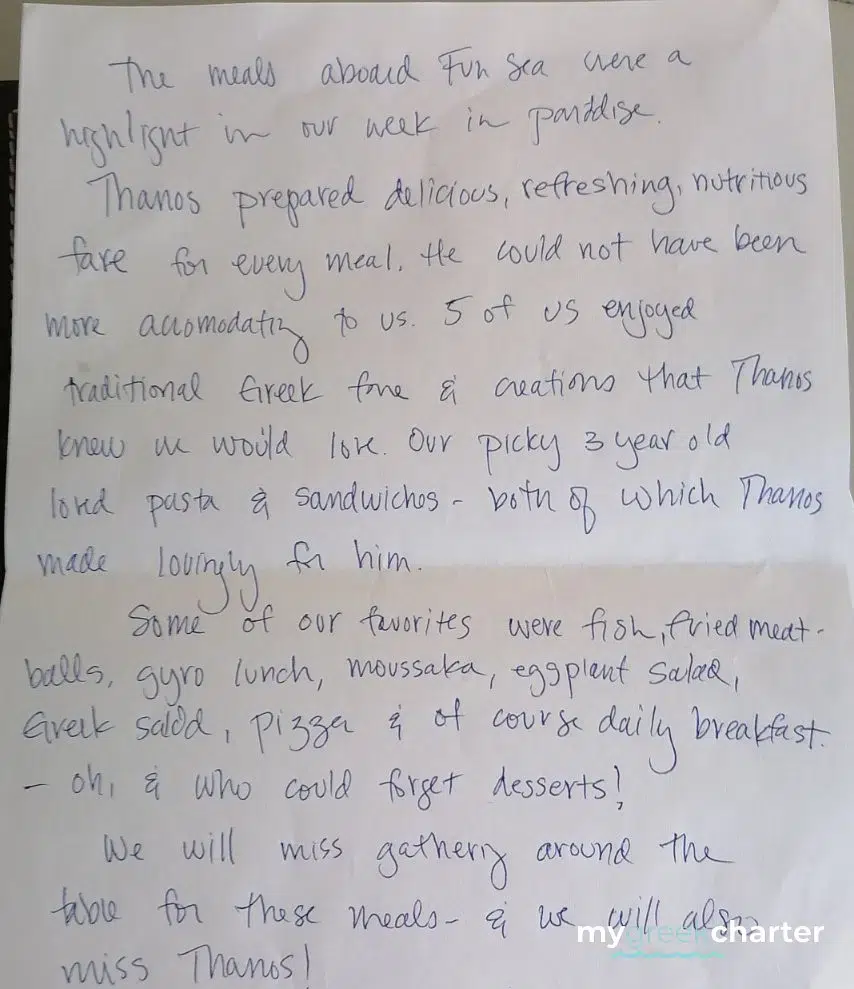 The meals aboard Fun Sea were a
highlight in our week in paradise.
Thanos prepared delicious, refreshing, nutritious
fare for every meal. He could not have been
more accomodating to us. 5 of us enjoyed
traditional Greek fare & creations that Thanos
knew we would love. Our picky 3 year old
loved pasta & sandwiches - both of which Thanos
made lovingly for him.
Some of our favorites were fish, fried meat-
balls, gyro lunch, moussaka, eggplant salad,
Greek salad, pizza & of course daily breakfast.
- oh, & who could forget desserts!
We will miss gathering around the
table for these meals - & we will also
miss Thanos!
mygreekcharter